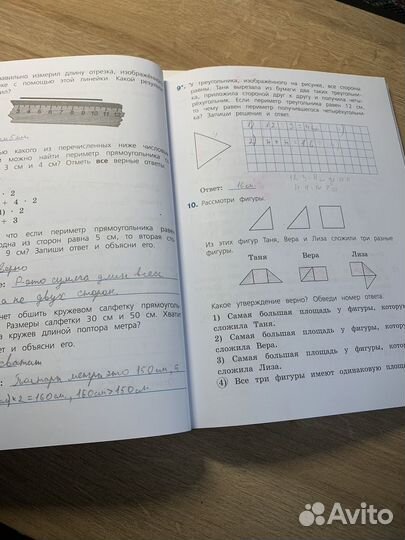 равильно измерил длину отрезка, изображённ
ке с помощью этой линейки. Какой резул
ил?
4 5 6 7 8 9 10 11 12
ью какого из перечисленных ниже числов
й можно найти периметр прямоугольника
3 см и 4 см? Отметь все верные ответы.
· 2
+ 4 · 2
) · 2
+ 3
что если периметр прямоугольника равен
одна из сторон равна 5 см, то вторая сто
9 см? Запиши ответ и объясни его.
верно
е: P-это сумма длин всех
а не двух сторон.
чет обшить кружевом салфетку прямоуголь
Размеры салфетки 30 см и 50 см. Хватит
кружев длиной полтора метра?
ет и объясни его.
хватит
е: Полтора метра это 150 см, а
) · 2 = 160 см, 160 см > 150 см
9*. У треугольника, изображённого на рисунке, все стороны
равны. Таня вырезала из бумаги два таких треугольни-
ка, приложила стороной друг к другу и получила четы-
рёхугольник. Если периметр треугольника равен 12 см,
то чему равен периметр получившегося четырёхугольни-
ка? Запиши решение и ответ.
1) 12 : 3 = 4 см
2) 4 · 4 = 16
Ответ: 16 см
10. Рассмотри фигуры.
Из этих фигур Таня, Вера и Лиза сложили три разные
фигуры.
Таня Вера Лиза
Какое утверждение верно? Обведи номер ответа.
1) Самая большая площадь у фигуры, котору
сложила Таня.
2) Самая большая площадь у фигуры, котор
сложила Вера.
3) Самая большая площадь у фигуры, кото
сложила Лиза.
4) Все три фигуры имеют одинаковую площ
Avito